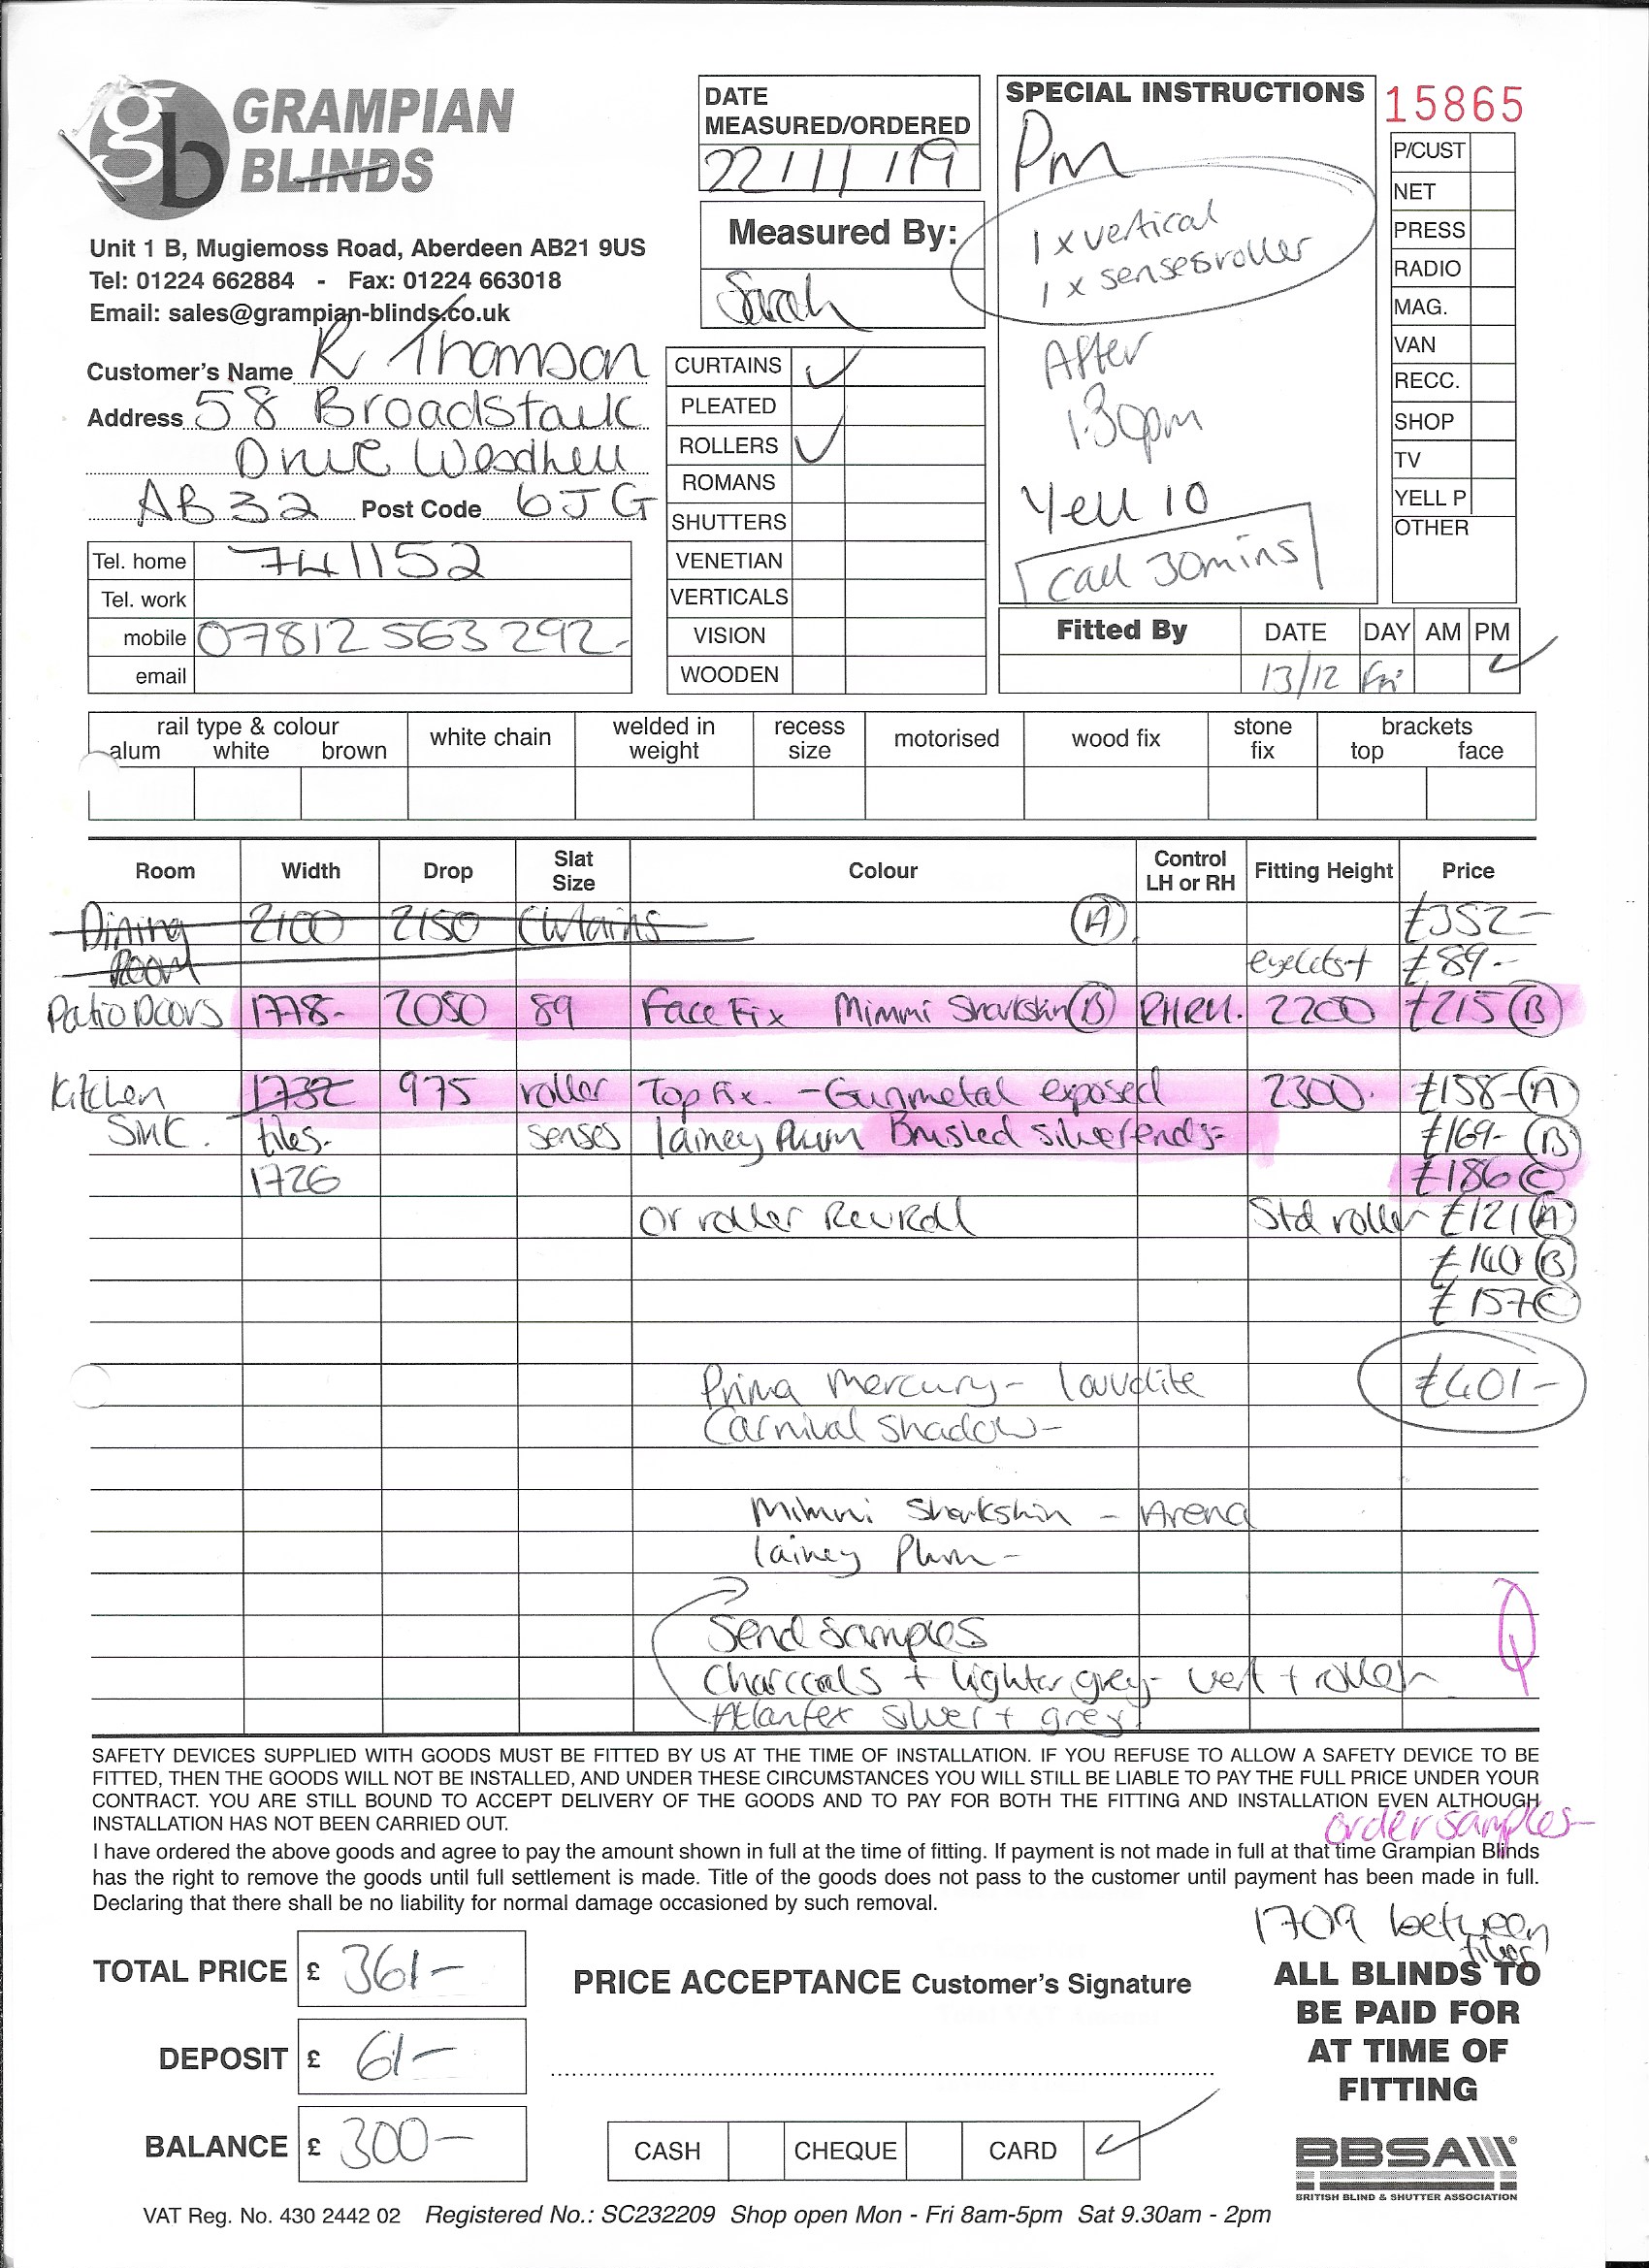 GRAMPIAN
BLINDS
gb
Unit 1 B, Mugiemoss Road, Aberdeen AB21 9US
Tel: 01224 662884 - Fax: 01224 663018
Email: sales@grampian-blinds.co.uk
Customer's Name R Thomson
Address 58 Broadstalk
Drive Westhill
AB32 Post Code 6JG
Tel. home 741152
Tel. work
mobile 07812 563 292-
email
DATE
MEASURED/ORDERED
22/11/19
Measured By:
Sarah
CURTAINS ✓
PLEATED
ROLLERS ✓
ROMANS
SHUTTERS
VENETIAN
VERTICALS
VISION
WOODEN
SPECIAL INSTRUCTIONS
Pm
1 x vertical
1 x senses roller
After
1.30pm
Yell 10
Call 30mins
15865
P/CUST
NET
PRESS
RADIO
MAG.
VAN
RECC.
SHOP
TV
YELL P
OTHER
Fitted By DATE DAY AM PM
13/12 Fri ✓
rail type & colour
alum white brown
white chain
welded in
weight
recess
size
motorised
wood fix
stone
fix
brackets
top face
Room Width Drop Slat Size Colour Control LH or RH Fitting Height Price
Dining 2100 2150 Curtains A £352-
Room eyelets+ £89-
Patio Doors 1778- 2050 89 Face Fix Mimmi Sharkskin B RHRH. 2200 £215 B
Kitchen 1732 975 roller Top Fix. - Gunmetal exposed 2300. £158- A
Sink. tiles- senses lainey Plum Brushed silver ends- £169- B
1726 £186 C
Or roller RevRoll Std roller £121 A
£140 B
£157 C
Prima Mercury- louvolite £401-
Carnival Shadow-
Mimmi Sharkskin - Arena
lainey Plum-
Send samples
Charcoals + lighter grey- vert + roller
Atlantex silver + grey.
SAFETY DEVICES SUPPLIED WITH GOODS MUST BE FITTED BY US AT THE TIME OF INSTALLATION. IF YOU REFUSE TO ALLOW A SAFETY DEVICE TO BE
FITTED, THEN THE GOODS WILL NOT BE INSTALLED, AND UNDER THESE CIRCUMSTANCES YOU WILL STILL BE LIABLE TO PAY THE FULL PRICE UNDER YOUR
CONTRACT. YOU ARE STILL BOUND TO ACCEPT DELIVERY OF THE GOODS AND TO PAY FOR BOTH THE FITTING AND INSTALLATION EVEN ALTHOUGH
INSTALLATION HAS NOT BEEN CARRIED OUT.
order samples-
I have ordered the above goods and agree to pay the amount shown in full at the time of fitting. If payment is not made in full at that time Grampian Blinds
has the right to remove the goods until full settlement is made. Title of the goods does not pass to the customer until payment has been made in full.
Declaring that there shall be no liability for normal damage occasioned by such removal.
1709 between
tiles
TOTAL PRICE £ 361-
DEPOSIT £ 61-
BALANCE £ 300-
PRICE ACCEPTANCE Customer's Signature
CASH CHEQUE CARD ✓
ALL BLINDS TO
BE PAID FOR
AT TIME OF
FITTING
BBSA
BRITISH BLIND & SHUTTER ASSOCIATION
VAT Reg. No. 430 2442 02 Registered No.: SC232209 Shop open Mon - Fri 8am-5pm Sat 9.30am - 2pm